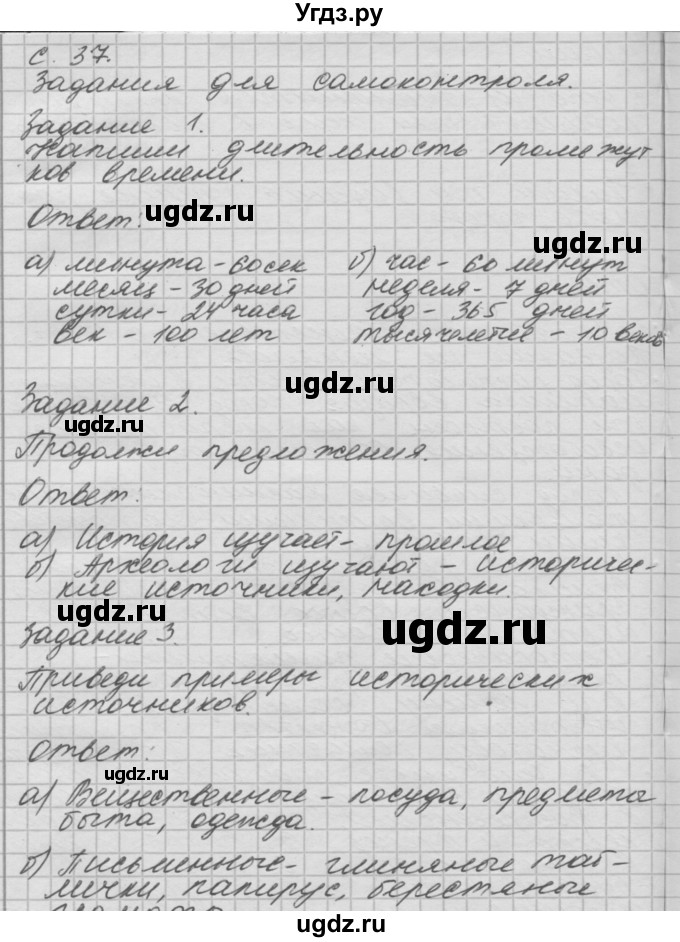 Угдз.ру
с. 37.
Задания для самоконтроля.
Задание 1.
Напиши длительность промежут
ков времени.
Ответ:
ugdz.ru
а) минута - 60 сек б) час - 60 минут
месяц - 30 дней неделя - 7 дней
сутки - 24 часа год - 365 дней
век - 100 лет тысячелетие - 10 веков
ugdz.ru
Задание 2.
ugdz.ru
Продолжи предложения.
Ответ:
ugdz.ru
а) История изучает - прошлое
б) Археологи изучают - историчес-
кие источники, находки.
ugdz.ru
Задание 3.
ugdz.ru
Приведи примеры исторических
источников.
Ответ:
ugdz.ru
а) Вещественные - посуда, предметы
быта, одежда.
ugdz.ru
б) Письменные - глиняные таб-
лички, папирус, берестяные
ugdz.ru